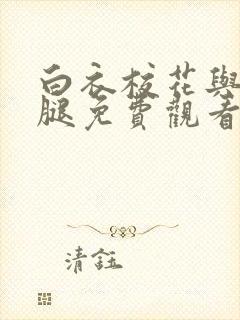 白衣校花與
腿免費觀看
清鈺